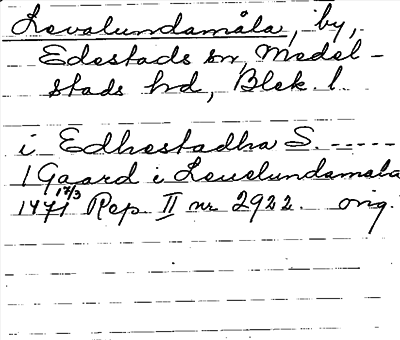 Levalundamåla, by,
Edestads sn, Medel-
stads hd, Blek. l.
i Edhestadha S. -----
1 Gaard i Leuelundamala
1471 17/3 Rep. II nr 2922. orig.